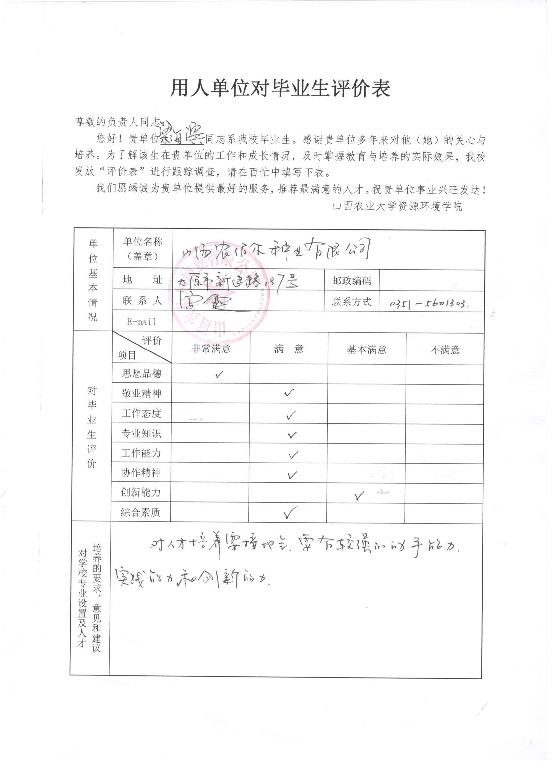 用人单位对毕业生评价表
尊敬的负责人同志：
您好！贵单位 同志系我校毕业生。感谢贵单位多年来对他（她）的关心与
培养，为了解该生在贵单位的工作和成长情况，及时掌握教育与培养的实际效果，我校
发放“评价表”进行跟踪调查，请在百忙中填写下表。
我们愿竭诚为贵单位提供最好的服务，推荐最满意的人才。祝贵单位事业兴旺发达！
山西农业大学资源环境学院
单位基本情况
单位名称（盖章） 山西农 种业有限公司
地 址 太原市新 路187号 邮政编码
联系人 联系方式 0351-5601303.
E-mail
评价 项目 非常满意 满 意 基本满意 不满意
对毕业生评价
思想品德 ✓
敬业精神 ✓
工作态度 ✓
专业知识 ✓
工作能力 ✓
协作精神 ✓
创新能力 ✓
综合素质 ✓
对学校专业设置及人才培养的要求、意见和建议
对人才培养要 , 要有较强的动手能力,
实践能力和创新能力.